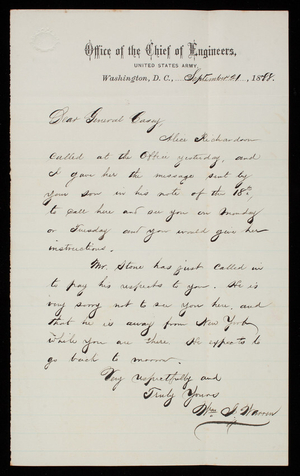 Office of the Chief of Engineers,
UNITED STATES ARMY,
Washington, D. C., September 21, 1888.
Dear General Casey
Alice Richardson
called at the Office yesterday, and
I gave her the message sent by
your son in his note of the 18th,
to call here and see you on Monday
or Tuesday and you would give her
instructions.
Mr. Stone has just called in
to pay his respects to you. He is
very sorry not to see you here, and
that he is away from New York
while you are there. He expects to
go back to morrow.
Very respectfully and
Truly Yours
Wm J Warren